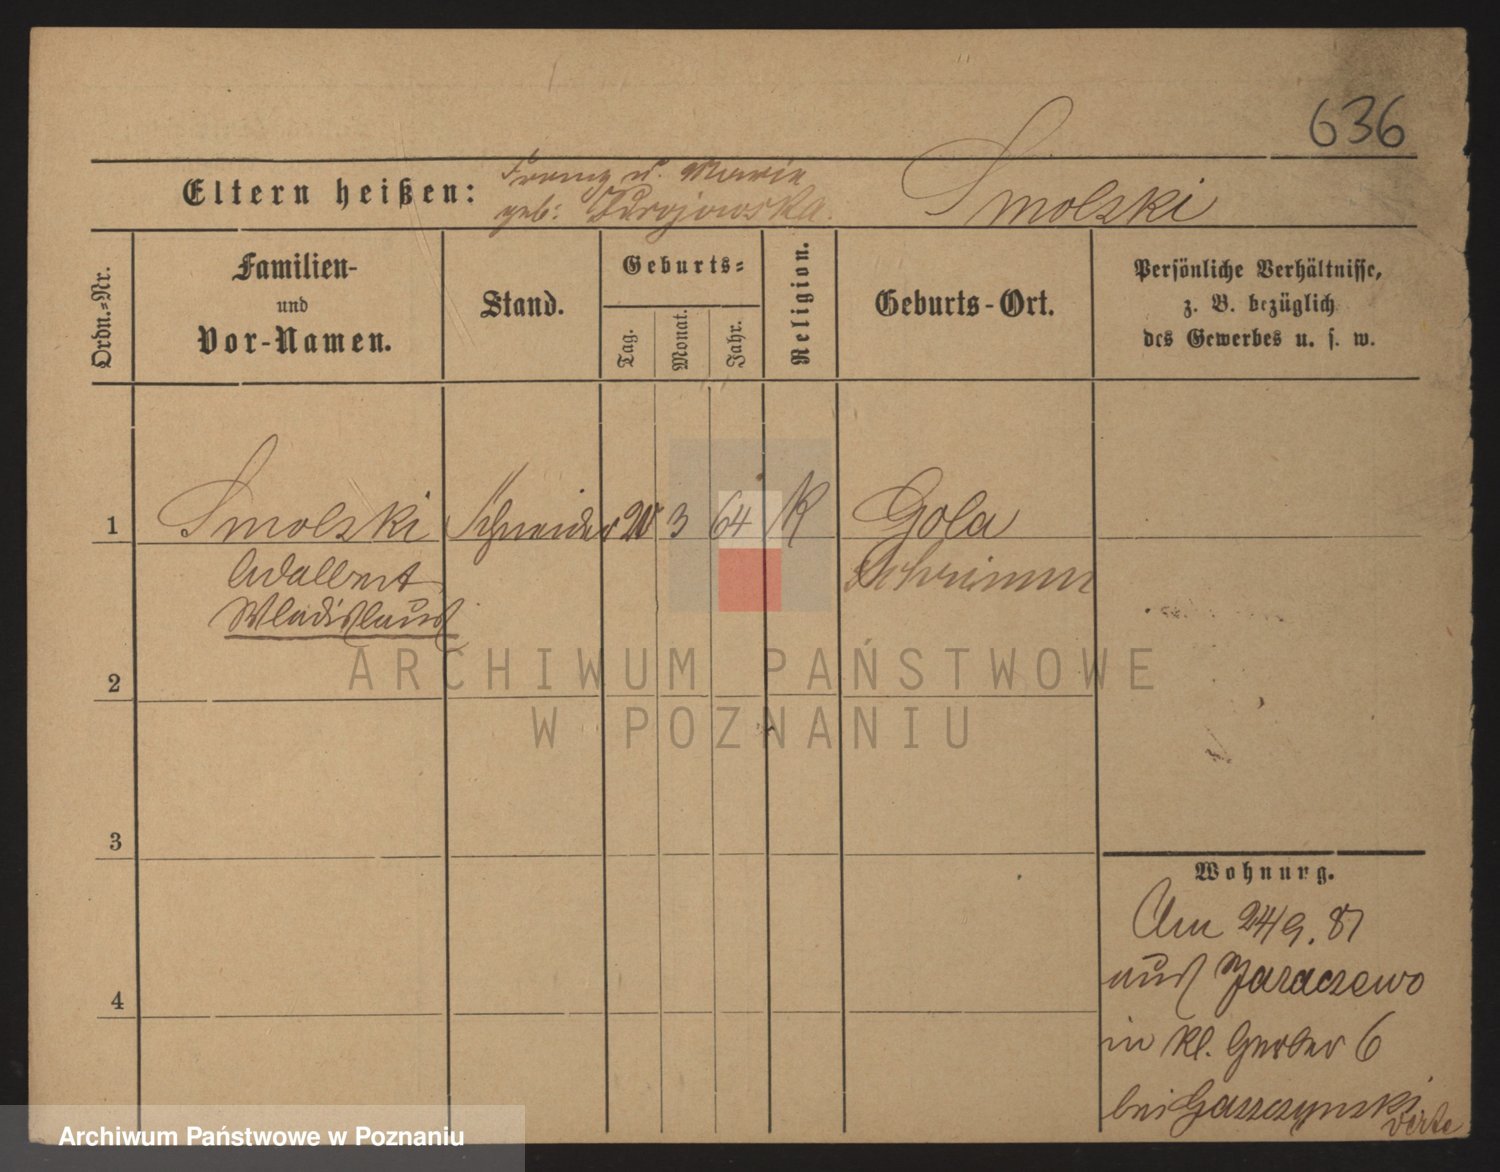 636
Eltern heißen: Franz u. Marie
geb:
Smolski
Ordn.-Nr.
Familien-
und
Vor-Namen.
Stand.
Geburts-
Tag.
Monat.
Jahr.
Religion.
Geburts-Ort.
Persönliche Verhältnisse,
z. B. bezüglich
des Gewerbes u. s. w.
1 Smolski Schneider 3 64 K Gola
Adalbert Schrimm
Wladislaus
2
3
4
Wohnung.
Am 24/9. 87
aus Jaraczewo
in Kl. Gerber 6
bei Gaszczynski
verte
ARCHIWUM PAŃSTWOWE
W POZNANIU
Archiwum Państwowe w Poznaniu